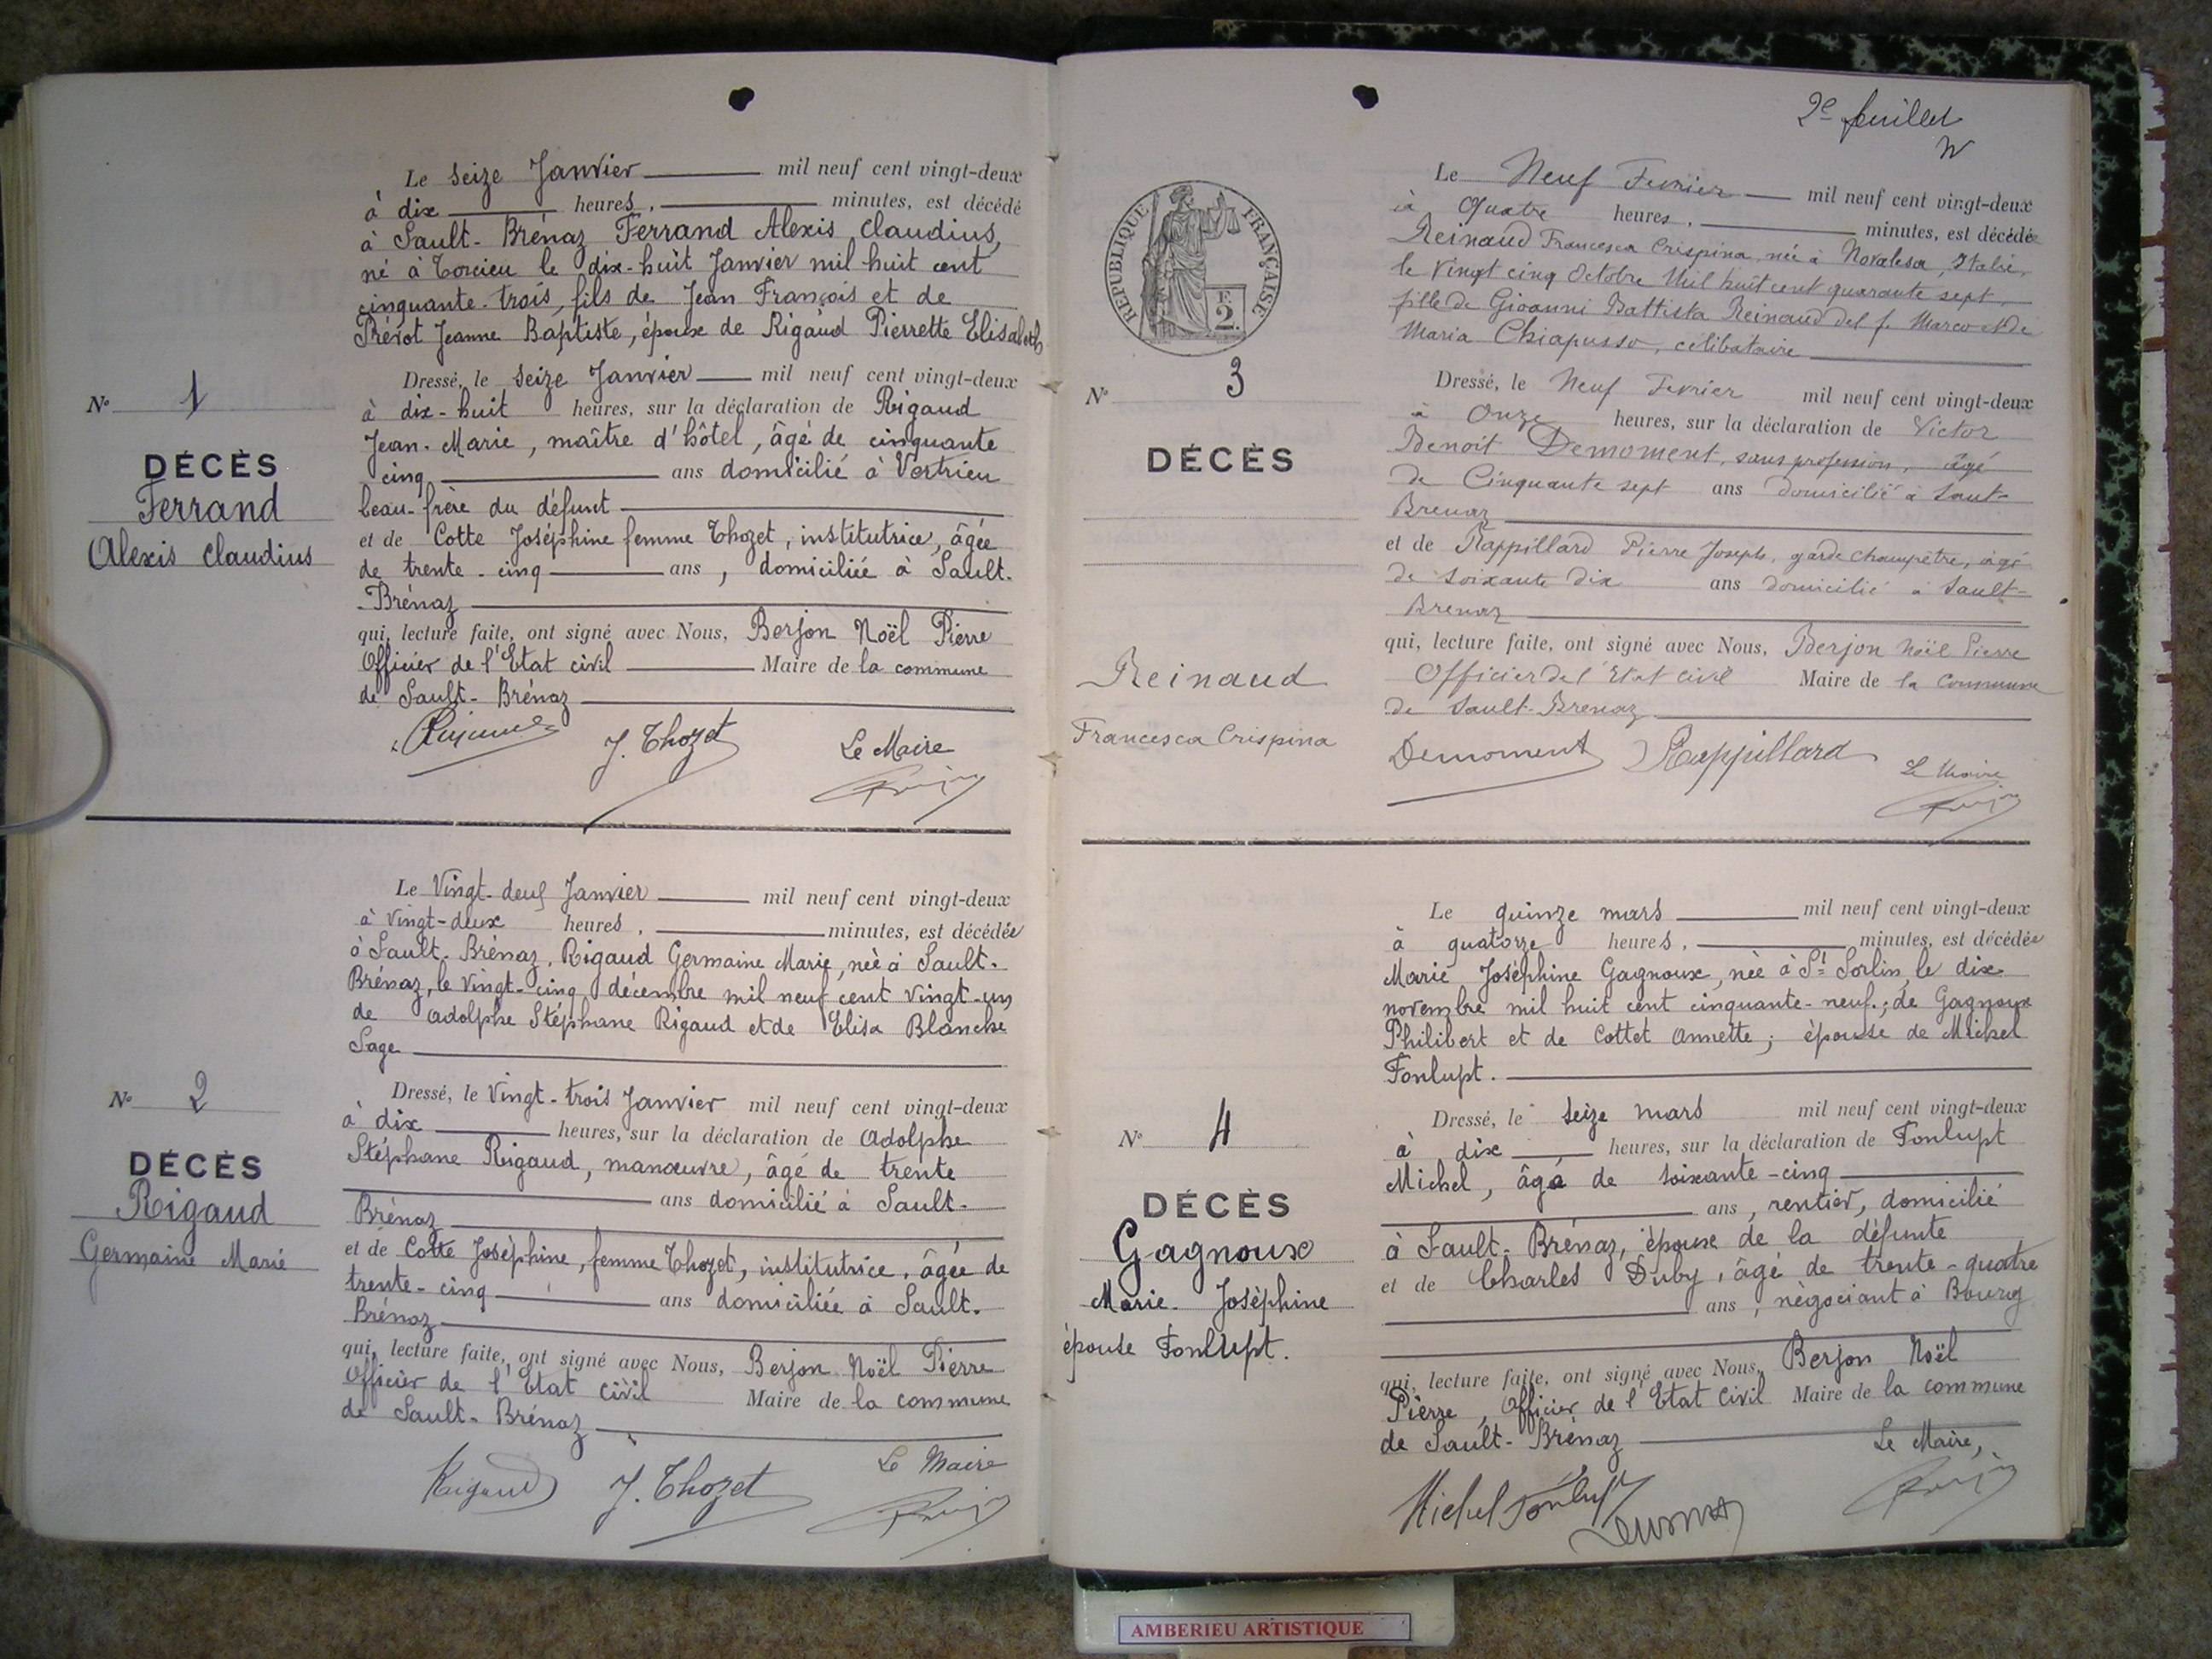 Le seize Janvier mil neuf cent vingt-deux
à dix heures, minutes, est décédé
à Sault-Brénaz Ferrand Alexis, Claudius,
né à Torcieu le dix-huit Janvier mil huit cent
cinquante-trois, fils de Jean François et de
Prévot Jeanne Baptiste, époux de Rigaud Pierrette Elisabeth
Dressé, le seize Janvier mil neuf cent vingt-deux
à dix-huit heures, sur la déclaration de Rigaud
Jean-Marie, maître d'hôtel, âgé de cinquante
cinq ans domicilié à Vertrieu
beau-frère du défunt
et de Cotte Joséphine femme Thozet, institutrice, âgée
de trente-cinq ans, domiciliée à Sault-
-Brénaz
qui, lecture faite, ont signé avec Nous, Berjon Noël Pierre
Officier de l'Etat civil Maire de la commune
de Sault-Brénaz
J. Thozet Le Maire
N° 1
DÉCÈS
Ferrand
Alexis Claudius
Le Vingt-deux Janvier mil neuf cent vingt-deux
à Vingt-deux heures, minutes, est décédée
à Sault-Brénaz, Rigaud Germaine Marie, née à Sault-
Brénaz, le vingt-cinq décembre mil neuf cent vingt-un
de Adolphe Stéphane Rigaud et de Elisa Blanche
Sage
Dressé, le Vingt-trois Janvier mil neuf cent vingt-deux
à dix heures, sur la déclaration de Adolphe
Stéphane Rigaud, manœuvre, âgé de trente
ans domicilié à Sault-
Brénaz
et de Cotte Joséphine, femme Thozet, institutrice, âgée de
trente-cinq ans domiciliée à Sault-
Brénaz
qui, lecture faite, ont signé avec Nous, Berjon Noël Pierre
Officier de l'Etat civil Maire de la commune
de Sault-Brénaz
Rigaud J. Thozet Le Maire
N° 2
DÉCÈS
Rigaud
Germaine Marie
2e feuillet
RÉPUBLIQUE FRANÇAISE
2 F.
Le Neuf Fevrier mil neuf cent vingt-deux
à Quatre heures, minutes, est décédée
Reinaud Francesca Crispina, née à Novalesa, Italie,
le Vingt cinq Octobre Mil huit cent quarante sept,
fille de Gioanni Battista Reinaud del f. Marco et de
Maria Chiapusso, célibataire
Dressé, le Neuf Fevrier mil neuf cent vingt-deux
à Onze heures, sur la déclaration de Victor
Benoit Demoment, sans profession, âgé
de Cinquante sept ans domicilié à Saut-
Brenaz
et de Rappillard Pierre Joseph, garde champêtre, âgé
de soixante dix ans domicilié à Sault-
Brenaz
qui, lecture faite, ont signé avec Nous, Berjon Noël Pierre
Officier de l'Etat civil Maire de la Commune
de Sault-Brenaz
Demoment Rappillard Le Maire
N° 3
DÉCÈS
Reinaud
Francesca Crispina
Le quinze mars mil neuf cent vingt-deux
à quatorze heures, minutes, est décédée
Marie Joséphine Gagnoux, née à St Sorlin, le dix
novembre mil huit cent cinquante-neuf; de Gagnoux
Philibert et de Cottet Annette; épouse de Michel
Fonlupt.
Dressé, le seize mars mil neuf cent vingt-deux
à dix, heures, sur la déclaration de Fonlupt
Michel, âgé de soixante-cinq
ans, rentier, domicilié
à Sault-Brénaz, époux de la défunte
et de Charles Duby, âgé de trente-quatre
ans, négociant à Bourg
qui, lecture faite, ont signé avec Nous, Berjon Noël
Pierre, Officier de l'Etat civil Maire de la commune
de Sault-Brénaz
Le Maire,
Michel Fonlupt
N° 4
DÉCÈS
Gagnoux
Marie-Joséphine
épouse Fonlupt.
AMBERIEU ARTISTIQUE